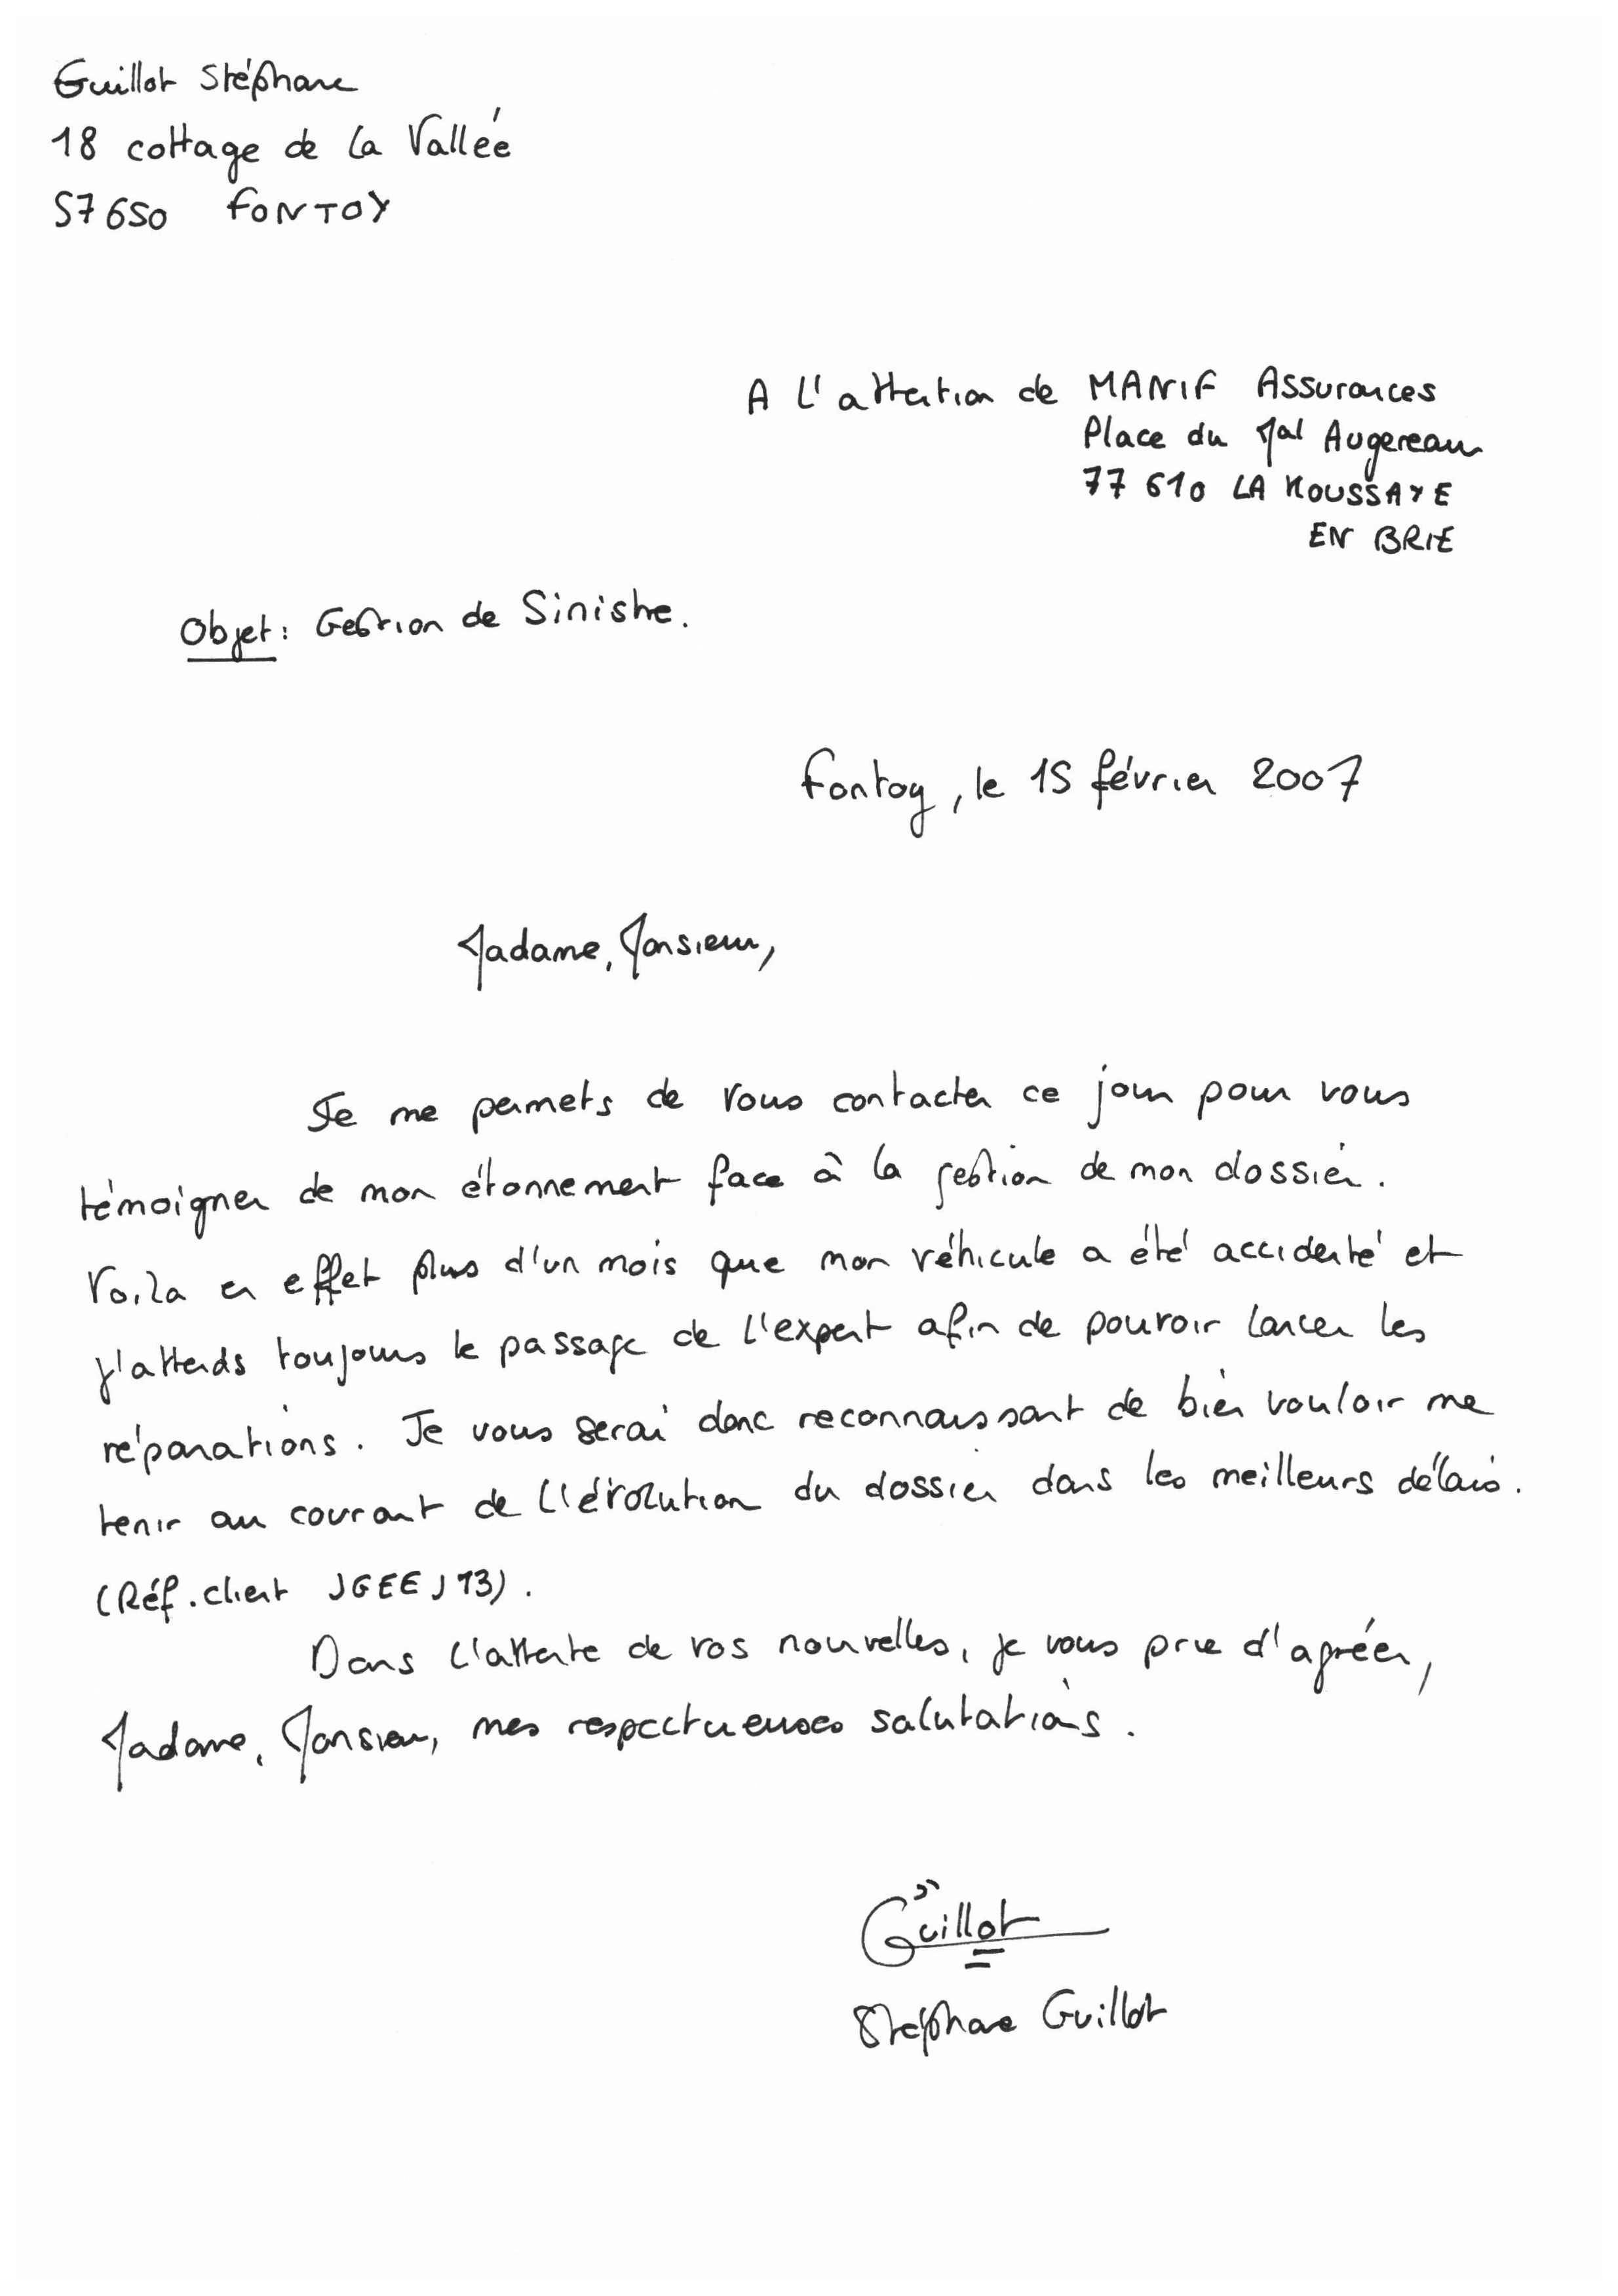 Guillot Stéphane
18 cottage de la Vallée
57650 FONTOY
A L'attention de MANIF Assurances
Place du Mal Augereau
77 610 LA HOUSSAYE
EN BRIE
Objet : Gestion de Sinistre.
Fontoy, le 15 février 2007
Madame, Monsieur,
Je me permets de vous contacter ce jour pour vous
témoigner de mon étonnement face à la gestion de mon dossier.
Voila en effet plus d'un mois que mon véhicule a été accidenté et
j'attends toujours le passage de l'expert afin de pouvoir lancer les
réparations. Je vous serai donc reconnaissant de bien vouloir me
tenir au courant de l'évolution du dossier dans les meilleurs délais.
(Réf. client JGEEJ13).
Dans l'attente de vos nouvelles, je vous prie d'agréer,
Madame, Monsieur, mes respectueuses salutations.
Guillot
Stéphane Guillot